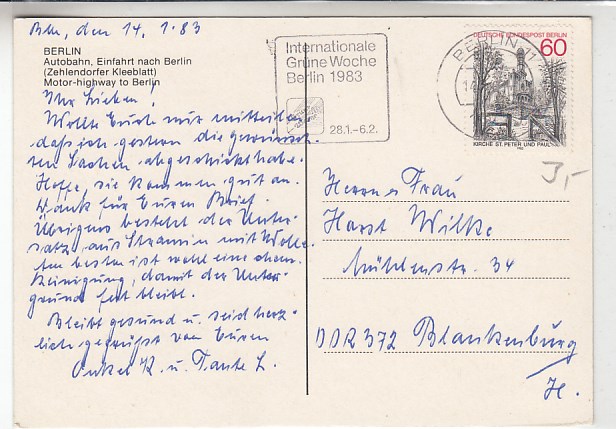 Bln, den 14.1.83
BERLIN
Autobahn, Einfahrt nach Berlin
(Zehlendorfer Kleeblatt)
Motor-highway to Berlin
Ihr Lieben,
Wollte Euch nur mitteilen
daß ich gestern die gewünsch-
ten Sachen abgeschickt habe.
Hoffe, sie kommen gut an.
Dank für Euren Brief.
Übrigens besteht der Unter-
satz aus Stramin mit Wolle
Am besten ist wohl eine chem.
Reinigung, damit der Unter-
grund fest bleibt.
Bleibt gesund u. seid herz-
lich gegrüßt von Euren
Onkel K. u. Tante L.
Internationale
Grüne Woche
Berlin 1983
28.1.-6.2.
BERLIN 11
14
DEUTSCHE BUNDESPOST BERLIN
60
KIRCHE ST. PETER UND PAUL
3,-
Herrn u. Frau
Horst Wilke
Mühlenstr. 34
DDR 372 Blankenburg
/H.